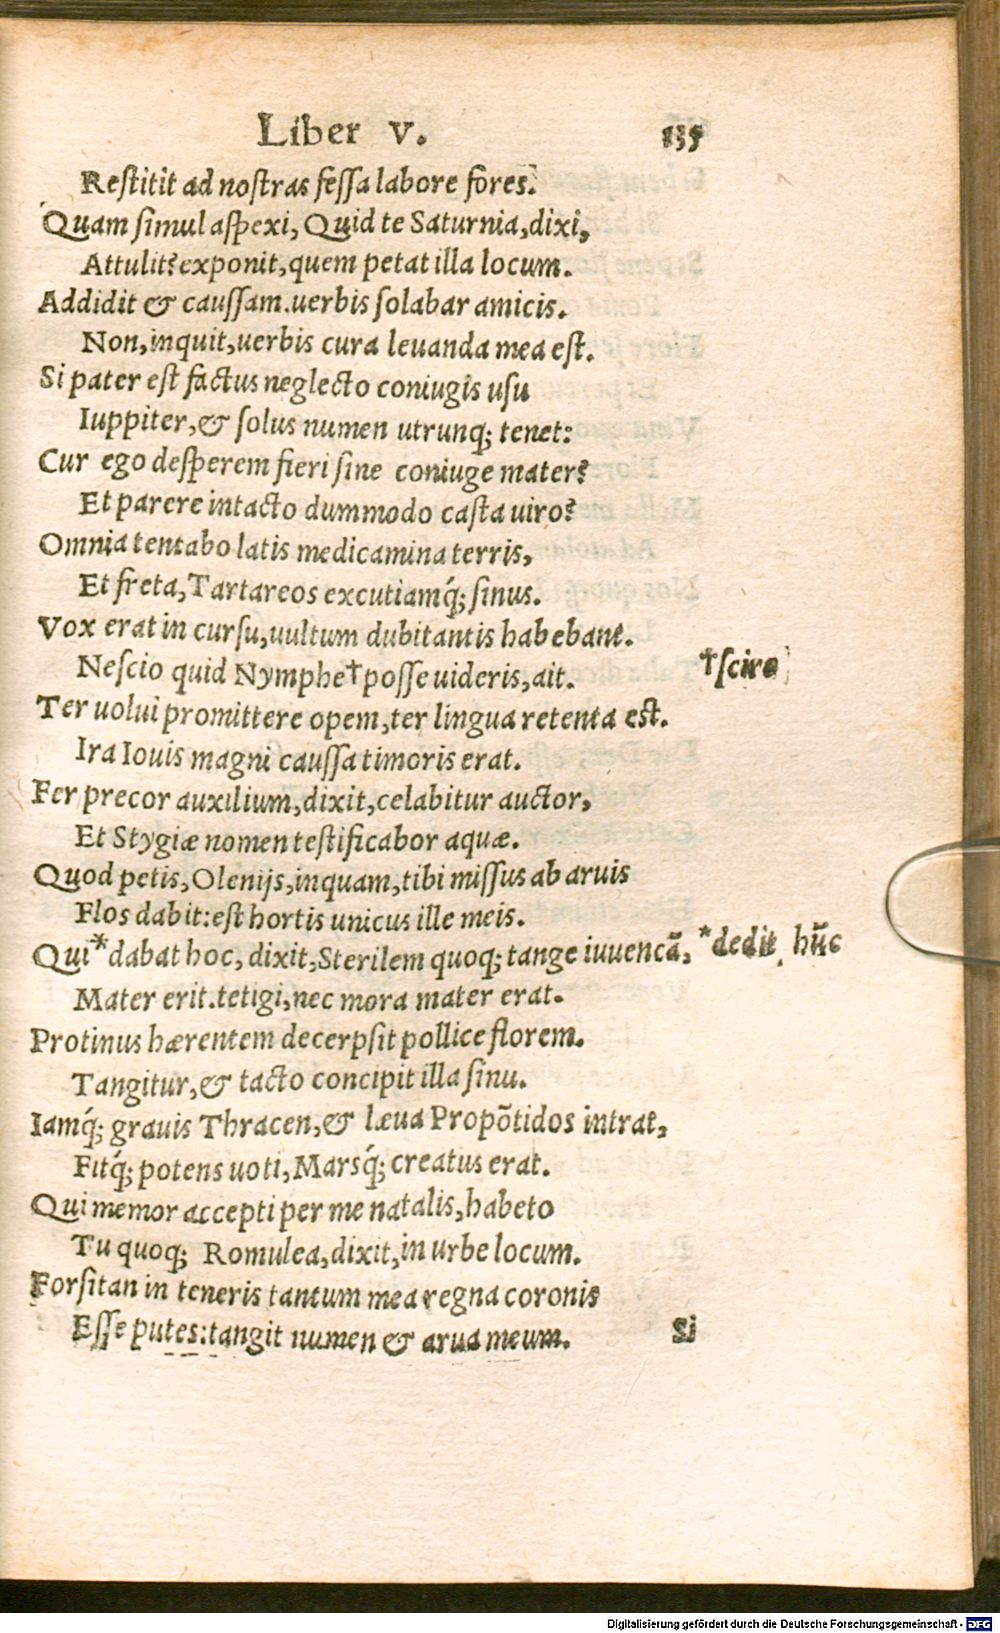 Liber V. 135
Restitit ad nostras fessa labore fores.
Quam simul aspexi, Quid te Saturnia, dixi,
Attulit? exponit, quem petat illa locum.
Addidit & caussam. uerbis solabar amicis.
Non, inquit, uerbis cura leuanda mea est.
Si pater est factus neglecto coniugis usu
Iuppiter, & solus numen utrunq; tenet:
Cur ego desperem fieri sine coniuge mater?
Et parere intacto dummodo casta uiro?
Omnia tentabo latis medicamina terris,
Et freta, Tartareos excutiamq́; sinus.
Vox erat in cursu, uultum dubitantis habebant.
Nescio quid Nymphe† posse uideris, ait. †scire
Ter uolui promittere opem, ter lingua retenta est.
Ira Iouis magni caussa timoris erat.
Fer precor auxilium, dixit, celabitur auctor,
Et Stygiæ nomen testificabor aquæ.
Quod petis, Olenijs, inquam, tibi missus ab aruis
Flos dabit: est hortis unicus ille meis.
Qui* dabat hoc, dixit, Sterilem quoq; tange iuuencā, *dedit hũc
Mater erit. tetigi, nec mora mater erat.
Protinus hærentem decerpsit pollice florem.
Tangitur, & tacto concipit illa sinu.
Iamq́; grauis Thracen, & læua Propõtidos intrat,
Fitq́; potens uoti, Marsq́; creatus erat.
Qui memor accepti per me natalis, habeto
Tu quoq; Romulea, dixit, in urbe locum.
Forsitan in teneris tantum mea regna coronis
Esse putes: tangit numen & arua meum. Si
Digitalisierung gefördert durch die Deutsche Forschungsgemeinschaft - DFG